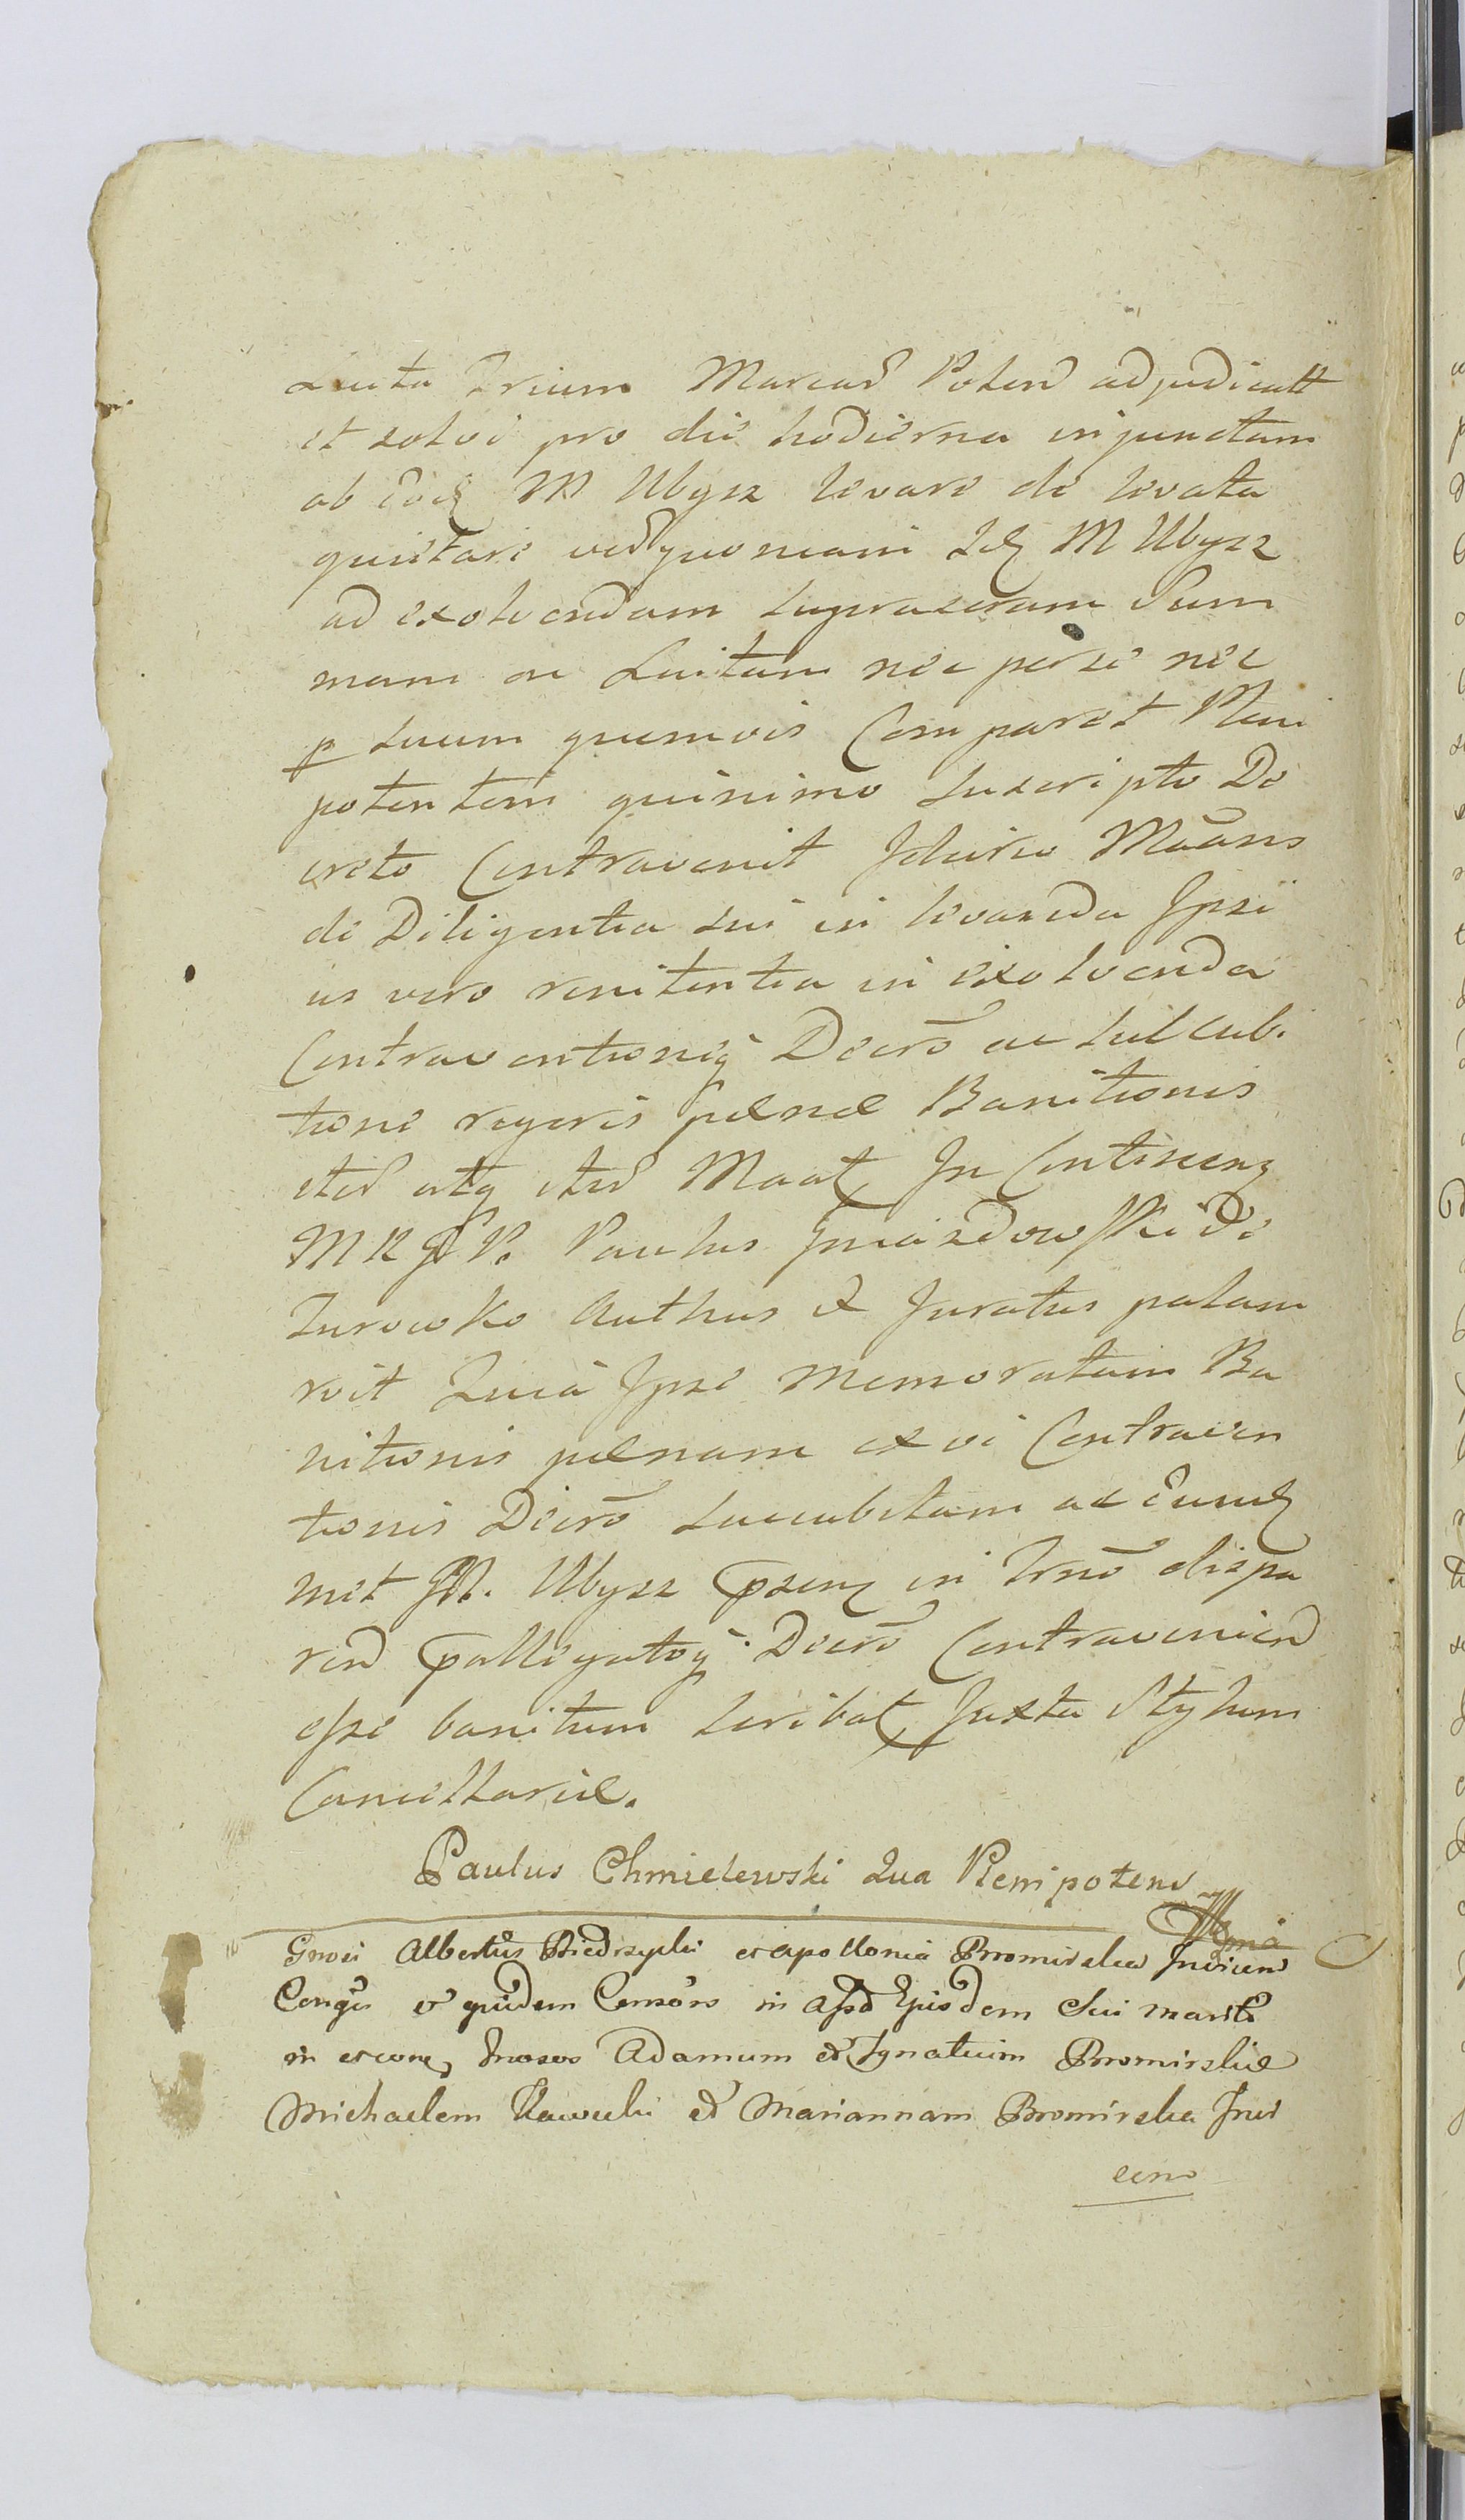 Luita Trium Marcar Polon adjudicatt
et solvi pro die hodierna injunctam
ab Eod M Ubysz levare de levata
quietare veruoneam Id M Ubysz
ad exolvendam suprascram Sum
mam ac Luitam nec per se nec
p suum quemvis Comparet Pleni
potentem quinimo suscripto De
creto Contravenit Ideirco Maans
de Diligentia sui in levanda Ipsi
us vero renitentia in exolvenda
Contraventioneq Decro ac succub.
tione regeris pœnæ Banitionis
ited atq ited Maat, In Continenz
M R P. Paulus Gniazdowski de
Zurowko Authus et Juratus palam
rvit Quia Ipse Memoratam Ba
nitionis pœnam ex vi Contraven
tionis Decro succubitam ac Eund
met M. Ubysz psenz in Trno dispa
ren palegatoq Decro Contravenien
esse banitum scribat, Juxta Stylum
Cancellariæ.
Paulus Chmielewski Qua Plenipotens
Gnosi Albertus Biedrzycki et Apollonia Bromirska Invicem
Conges et quidem Consors in assa Ejusdem Sui mariti
in et cone, Gnosos Adamum et Ignatium Bromirskie
Michaelem Kawecki et Mariannam Bromirska Invi
cem